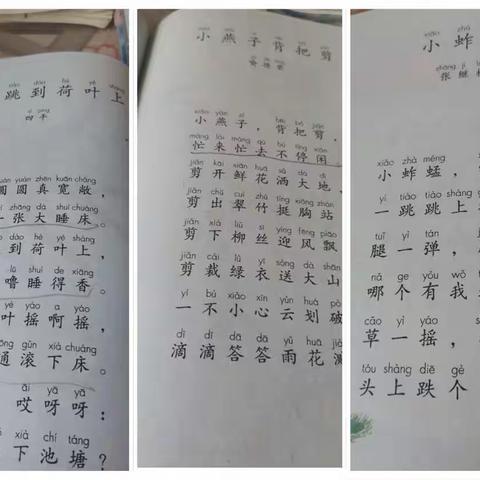 tiào dào hé yè shàng
跳到荷叶上
sì píng
四平
yuán yuán zhēn kuān chǎng
圆圆真宽敞，
zhāng dà shuì chuáng
一张大睡床。
dào hé yè shàng
到荷叶上，
lū shuì de xiāng
噜睡得香。
yè yáo a yáo
叶摇啊摇，
gǔn xià chuáng
通滚下床。
āi yā yā
哎呀呀：
xià chí táng
下池塘？
xiǎo yàn zi bēi bǎ jiǎn
小燕子背把剪
xiǎo yàn zi
小燕子，背把剪，
máng lái máng qù bù tíng xián
忙来忙去不停闲。
jiǎn kāi xiān huā sǎ dà dì
剪开鲜花洒大地，
jiǎn chū cuì zhú tǐng xiōng zhàn
剪出翠竹挺胸站
jiǎn xià liǔ sī yíng fēng piāo
剪下柳丝迎风飘
jiǎn cái lǜ yī sòng dà shān
剪裁绿衣送大山
yí bù xiǎo xīn yún huá pò
一不小心云划破
dī dī dā dā yǔ huā
滴滴答答雨花
xiǎo zhà
小蚱
zhāng jì
张继
xiǎo zhà měng
小蚱蜢，
yí tiào tiào shàng
一跳跳上
tuǐ yì tán
腿一弹，
nǎ ge yǒu wǒ
哪个有我
cǎo yì yáo
草一摇，
tóu shàng diē gè
头上跌个